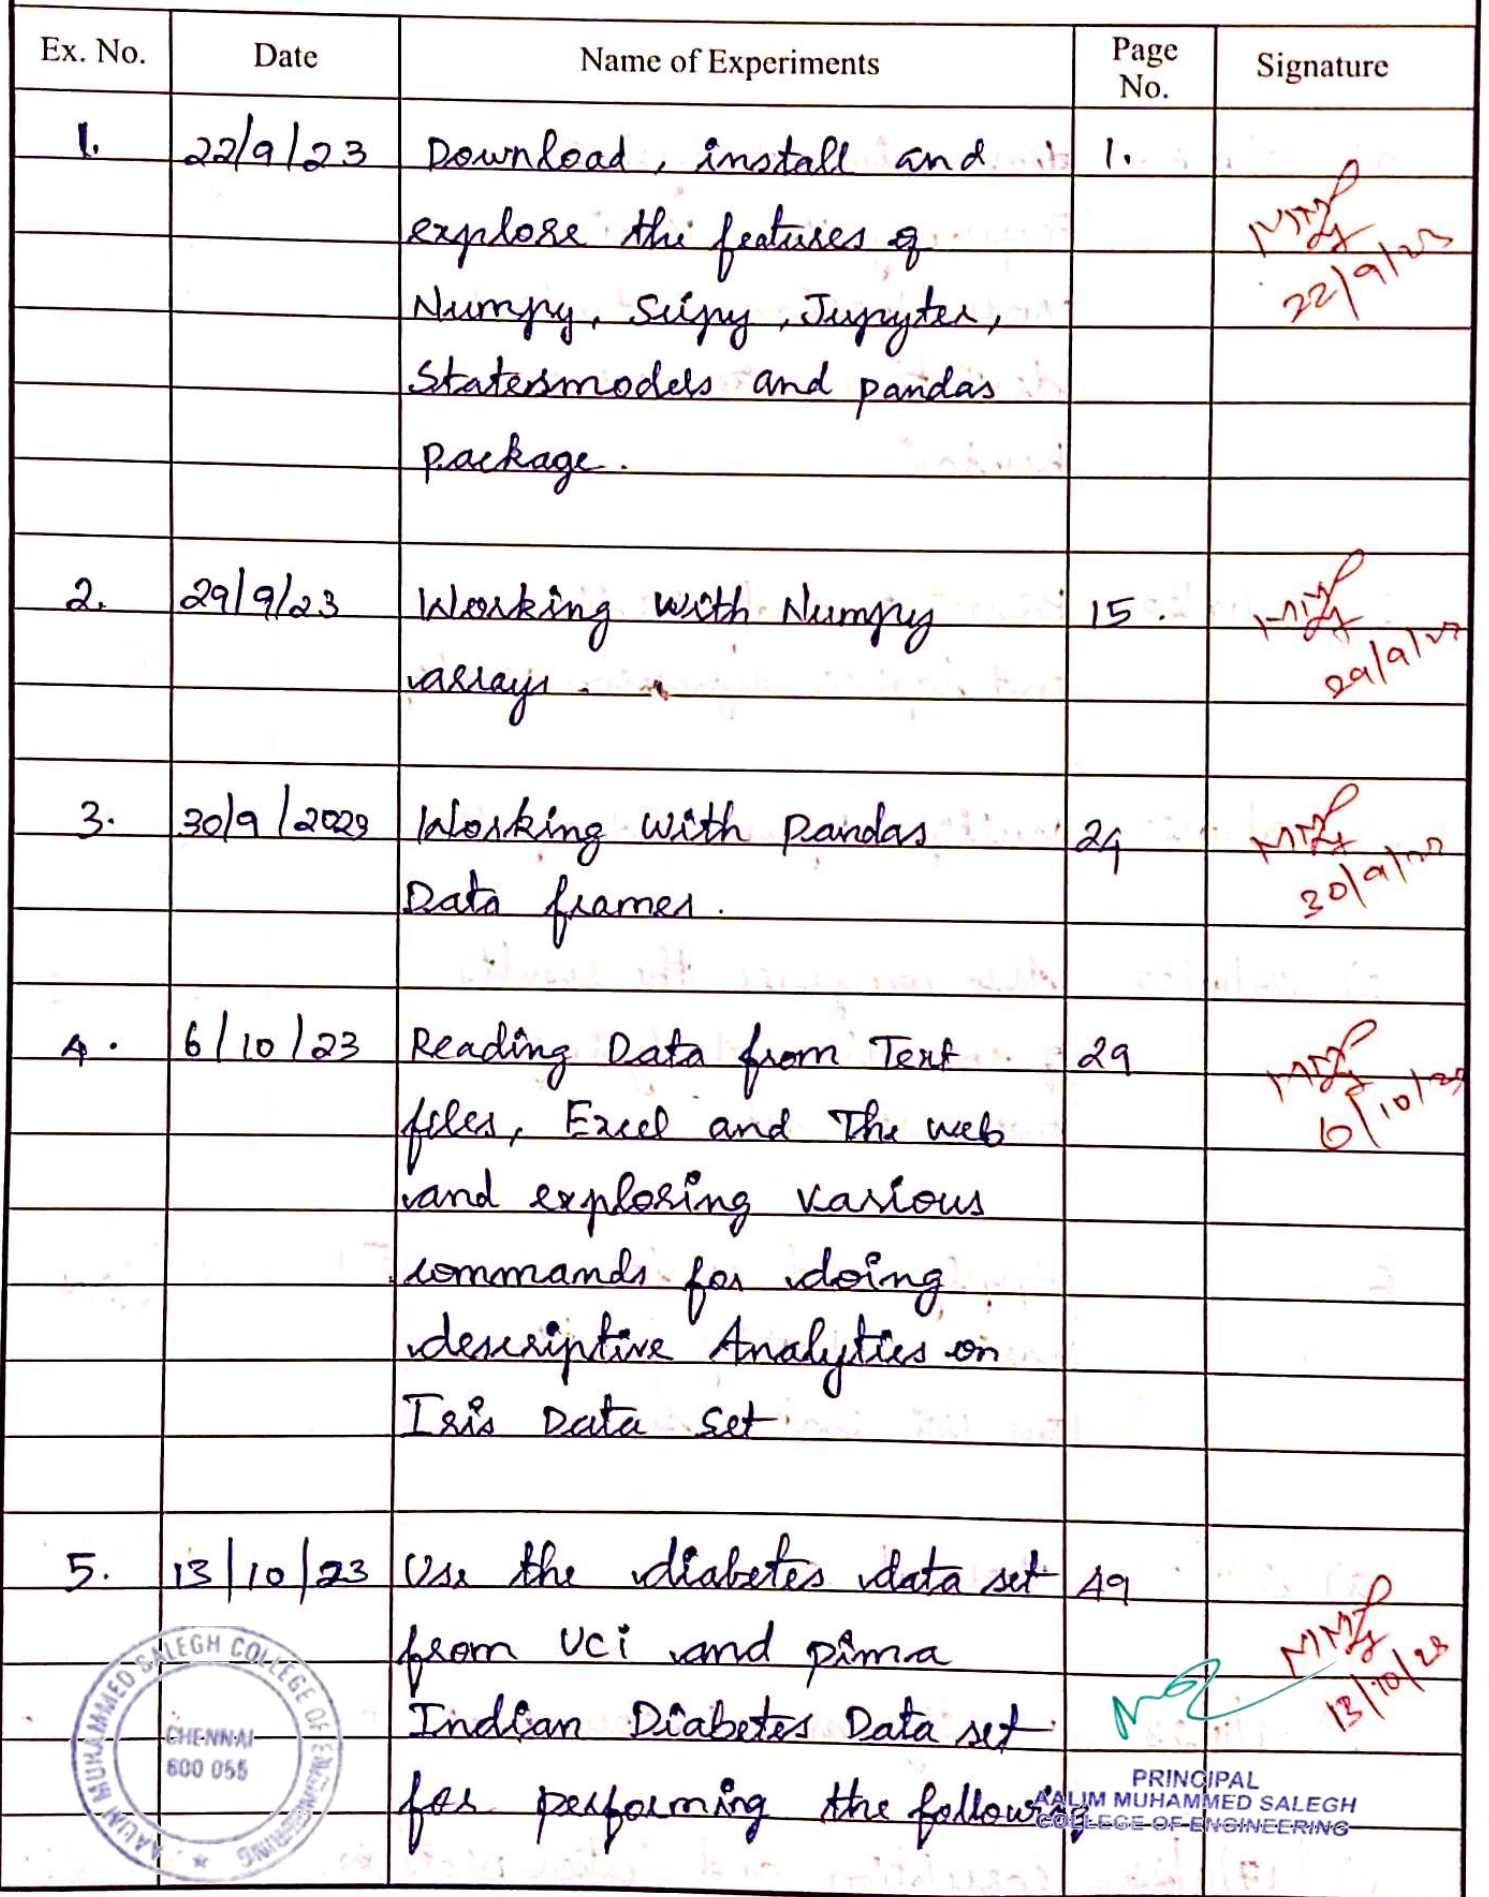 Ex. No. Date Name of Experiments Page No. Signature
1. 22/9/23 Download, install and 1.
explore the features of
Numpy, Scipy, Jupyter, 22/9/23
Statesmodels and pandas
package.
2. 29/9/23 Working with Numpy 15.
arrays. 29/9/23
3. 30/9/2023 Working with pandas 24
Data frames. 30/9/23
4. 6/10/23 Reading Data from Text 29
files, Excel and The web 6/10/23
and exploring various
commands for doing
descriptive Analytics on
Iris Data Set
5. 13/10/23 Use the diabetes data set 49
from UCI and pima 13/10/23
Indian Diabetes Data set
for performing the following
AALIM MUHAMMED SALEGH COLLEGE OF ENGINEERING
CHENNAI
600 055
PRINCIPAL
AALIM MUHAMMED SALEGH
COLLEGE OF ENGINEERING